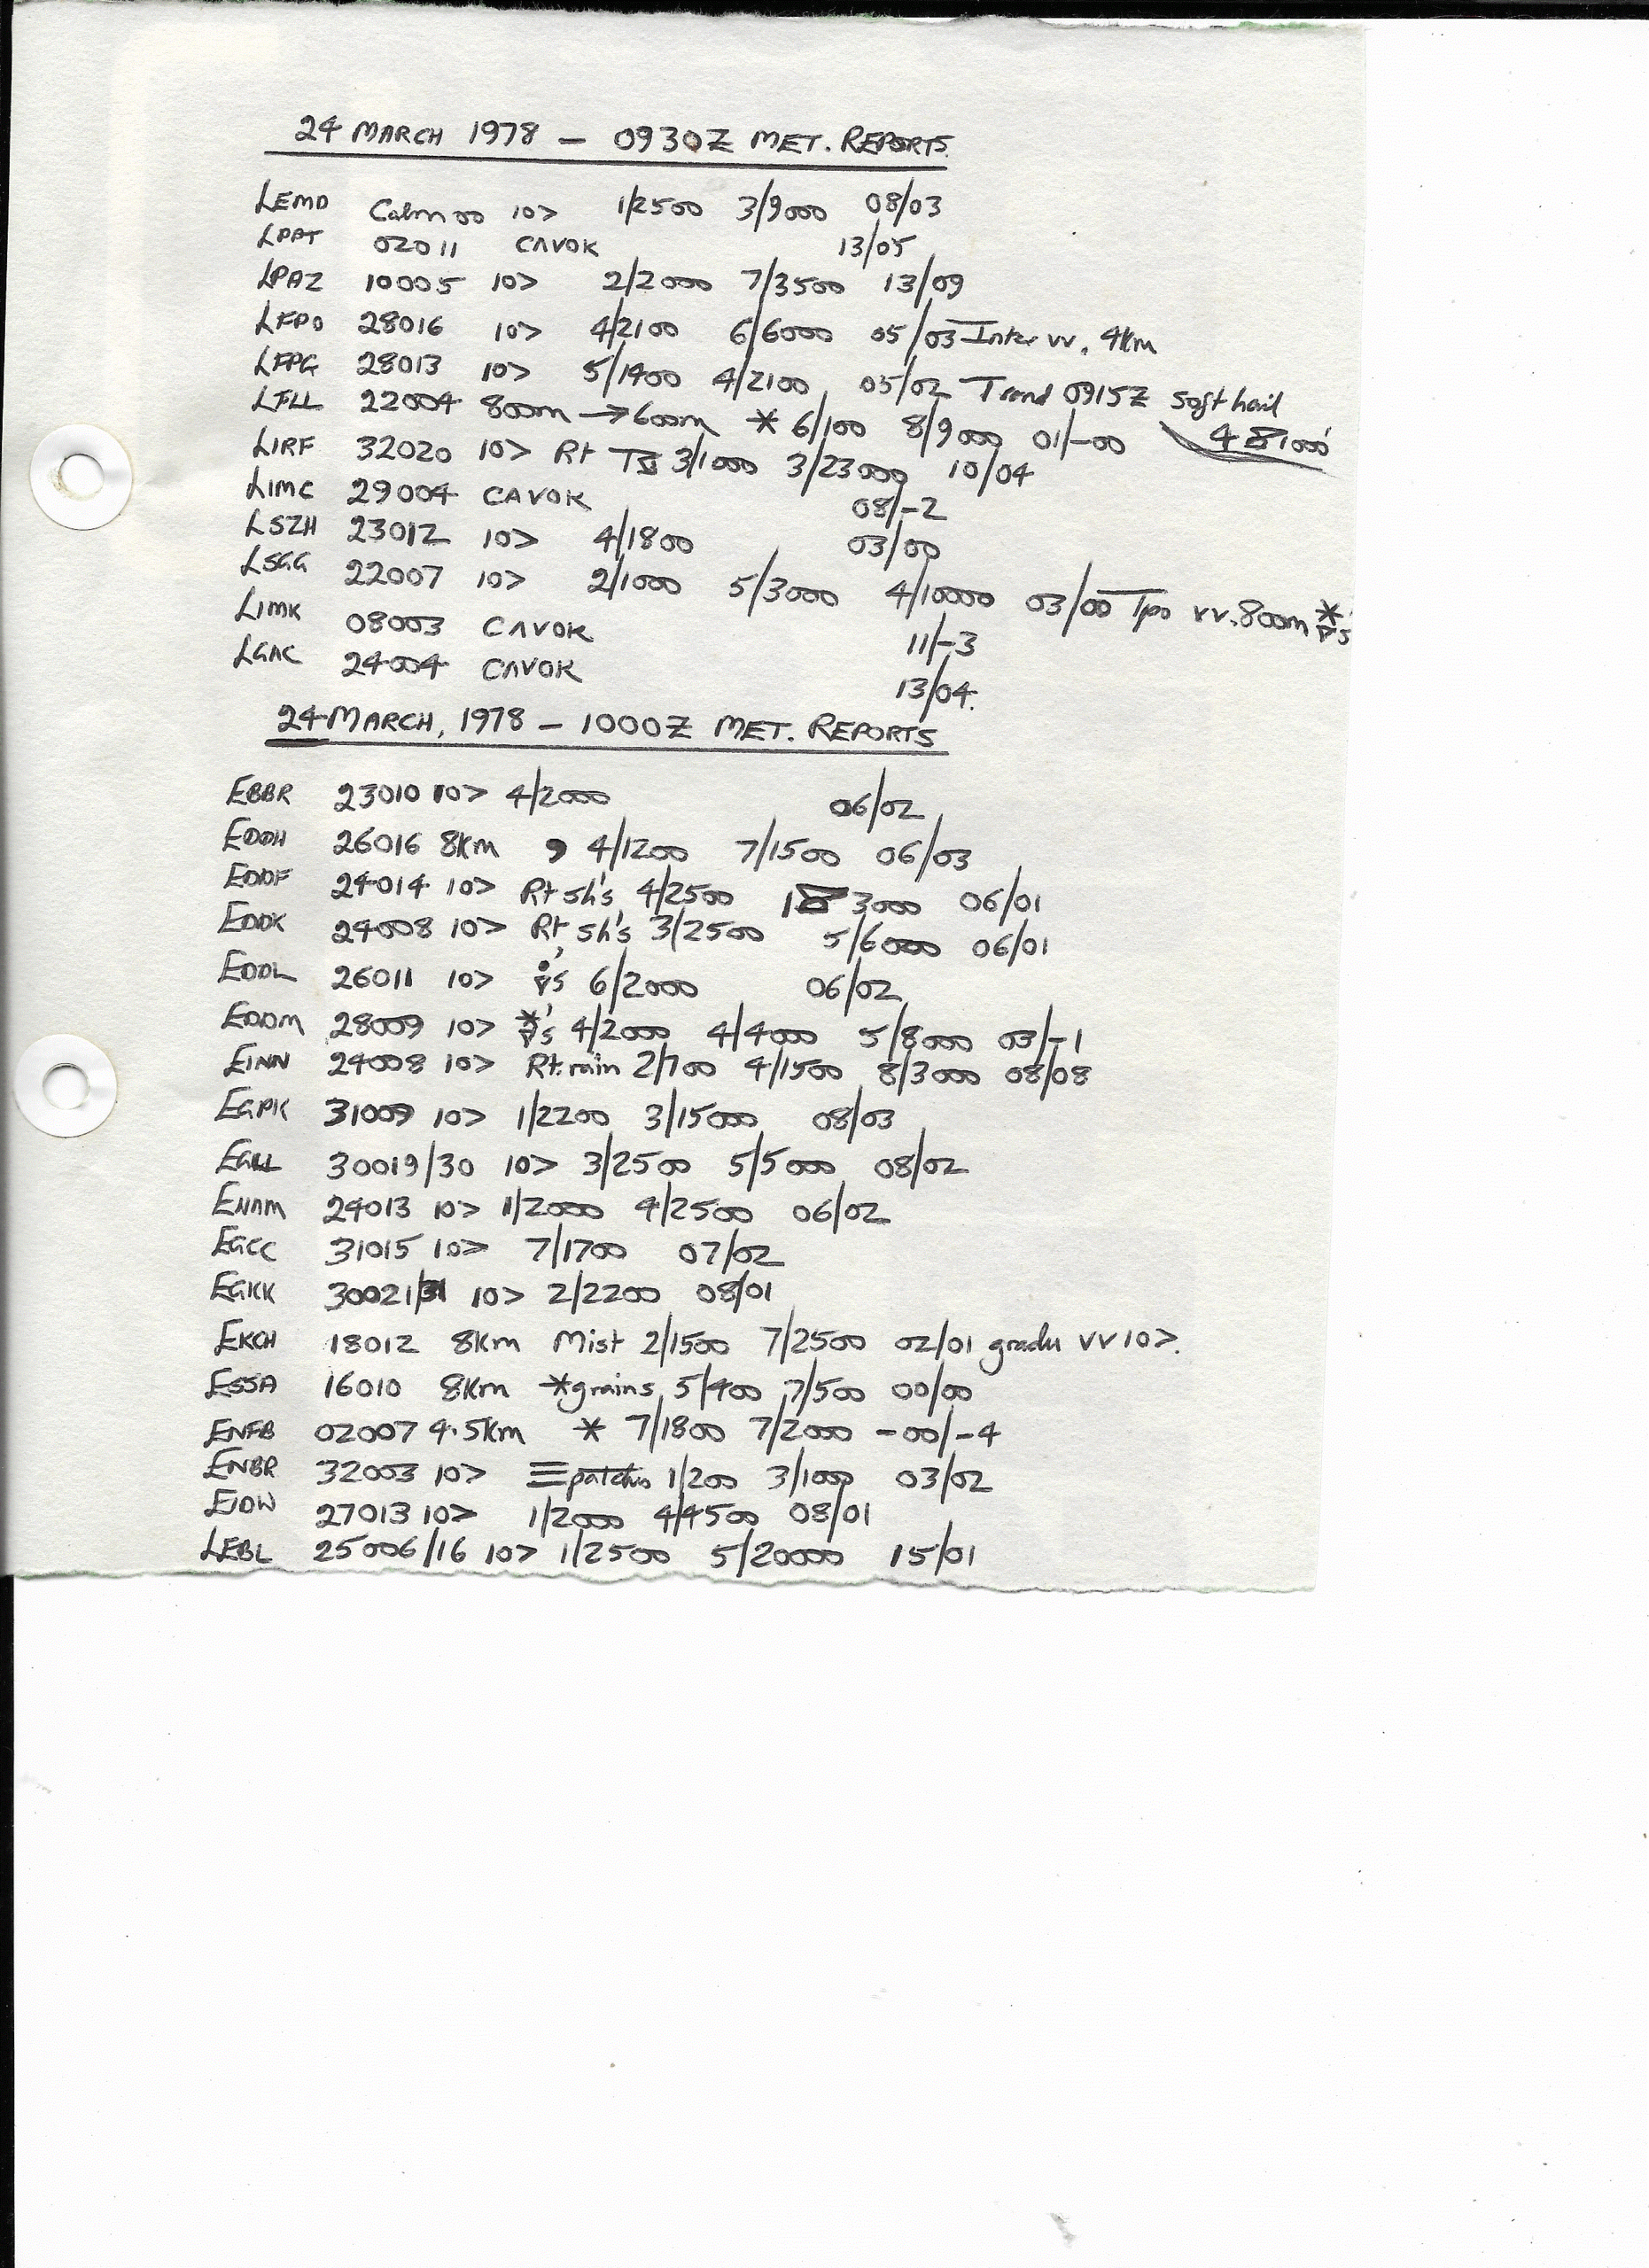 24 MARCH 1978 — 0930Z MET. REPORTS.
LEMD Calm 00 10> 1/2500 3/9000 08/03
LPPT 02011 CAVOK 13/05
LPAZ 10005 10> 2/2000 7/3500 13/09
LFPO 28016 10> 4/2100 6/6000 05/03 Inter vv. 4km
LFPG 28013 10> 5/1400 4/2100 05/02 Trend 0915Z soft hail
LFLL 22004 800m → 600m * 6/100 8/9000 01/-00 481000'
LIRF 32020 10> Rt TS 3/1000 3/23000 10/04
LIMC 29004 CAVOK 08/-2
LSZH 23012 10> 4/1800 03/00
LSGG 22007 10> 2/1000 5/3000 4/10000 03/00 Tpo vv. 800m *▽'s
LIMK 08003 CAVOK 11/-3
LGAC 24004 CAVOK 13/04.
24 MARCH, 1978 — 1000Z MET. REPORTS
EBBR 23010 10> 4/2000 06/02
EDDH 26016 8km , 4/1200 7/1500 06/03
EDDF 24014 10> Rt sh's 4/2500 3000 06/01
EDDK 24008 10> Rt sh's 3/2500 5/6000 06/01
EDDL 26011 10> •▽'s 6/2000 06/02
EDDM 28009 10> *▽'s 4/2000 4/4000 5/8000 03/-1
EINN 24008 10> Rt. rain 2/700 4/1500 8/3000 08/08
EGPK 31009 10> 1/2200 3/15000 08/03
EGLL 30019/30 10> 3/2500 5/5000 08/02
EHAM 24013 10> 1/2000 4/2500 06/02
EGCC 31015 10> 7/1700 07/02
EGKK 30021/31 10> 2/2200 08/01
EKCH 18012 8km Mist 2/1500 7/2500 02/01 gradu vv 10>.
ESSA 16010 8km *grains 5/400 7/500 00/00
ENFB 02007 4.5km * 7/1800 7/2000 -00/-4
ENBR 32003 10> ≡patches 1/200 3/1000 03/02
EIDW 27013 10> 1/2000 4/4500 08/01
LEBL 25006/16 10> 1/2500 5/20000 15/01